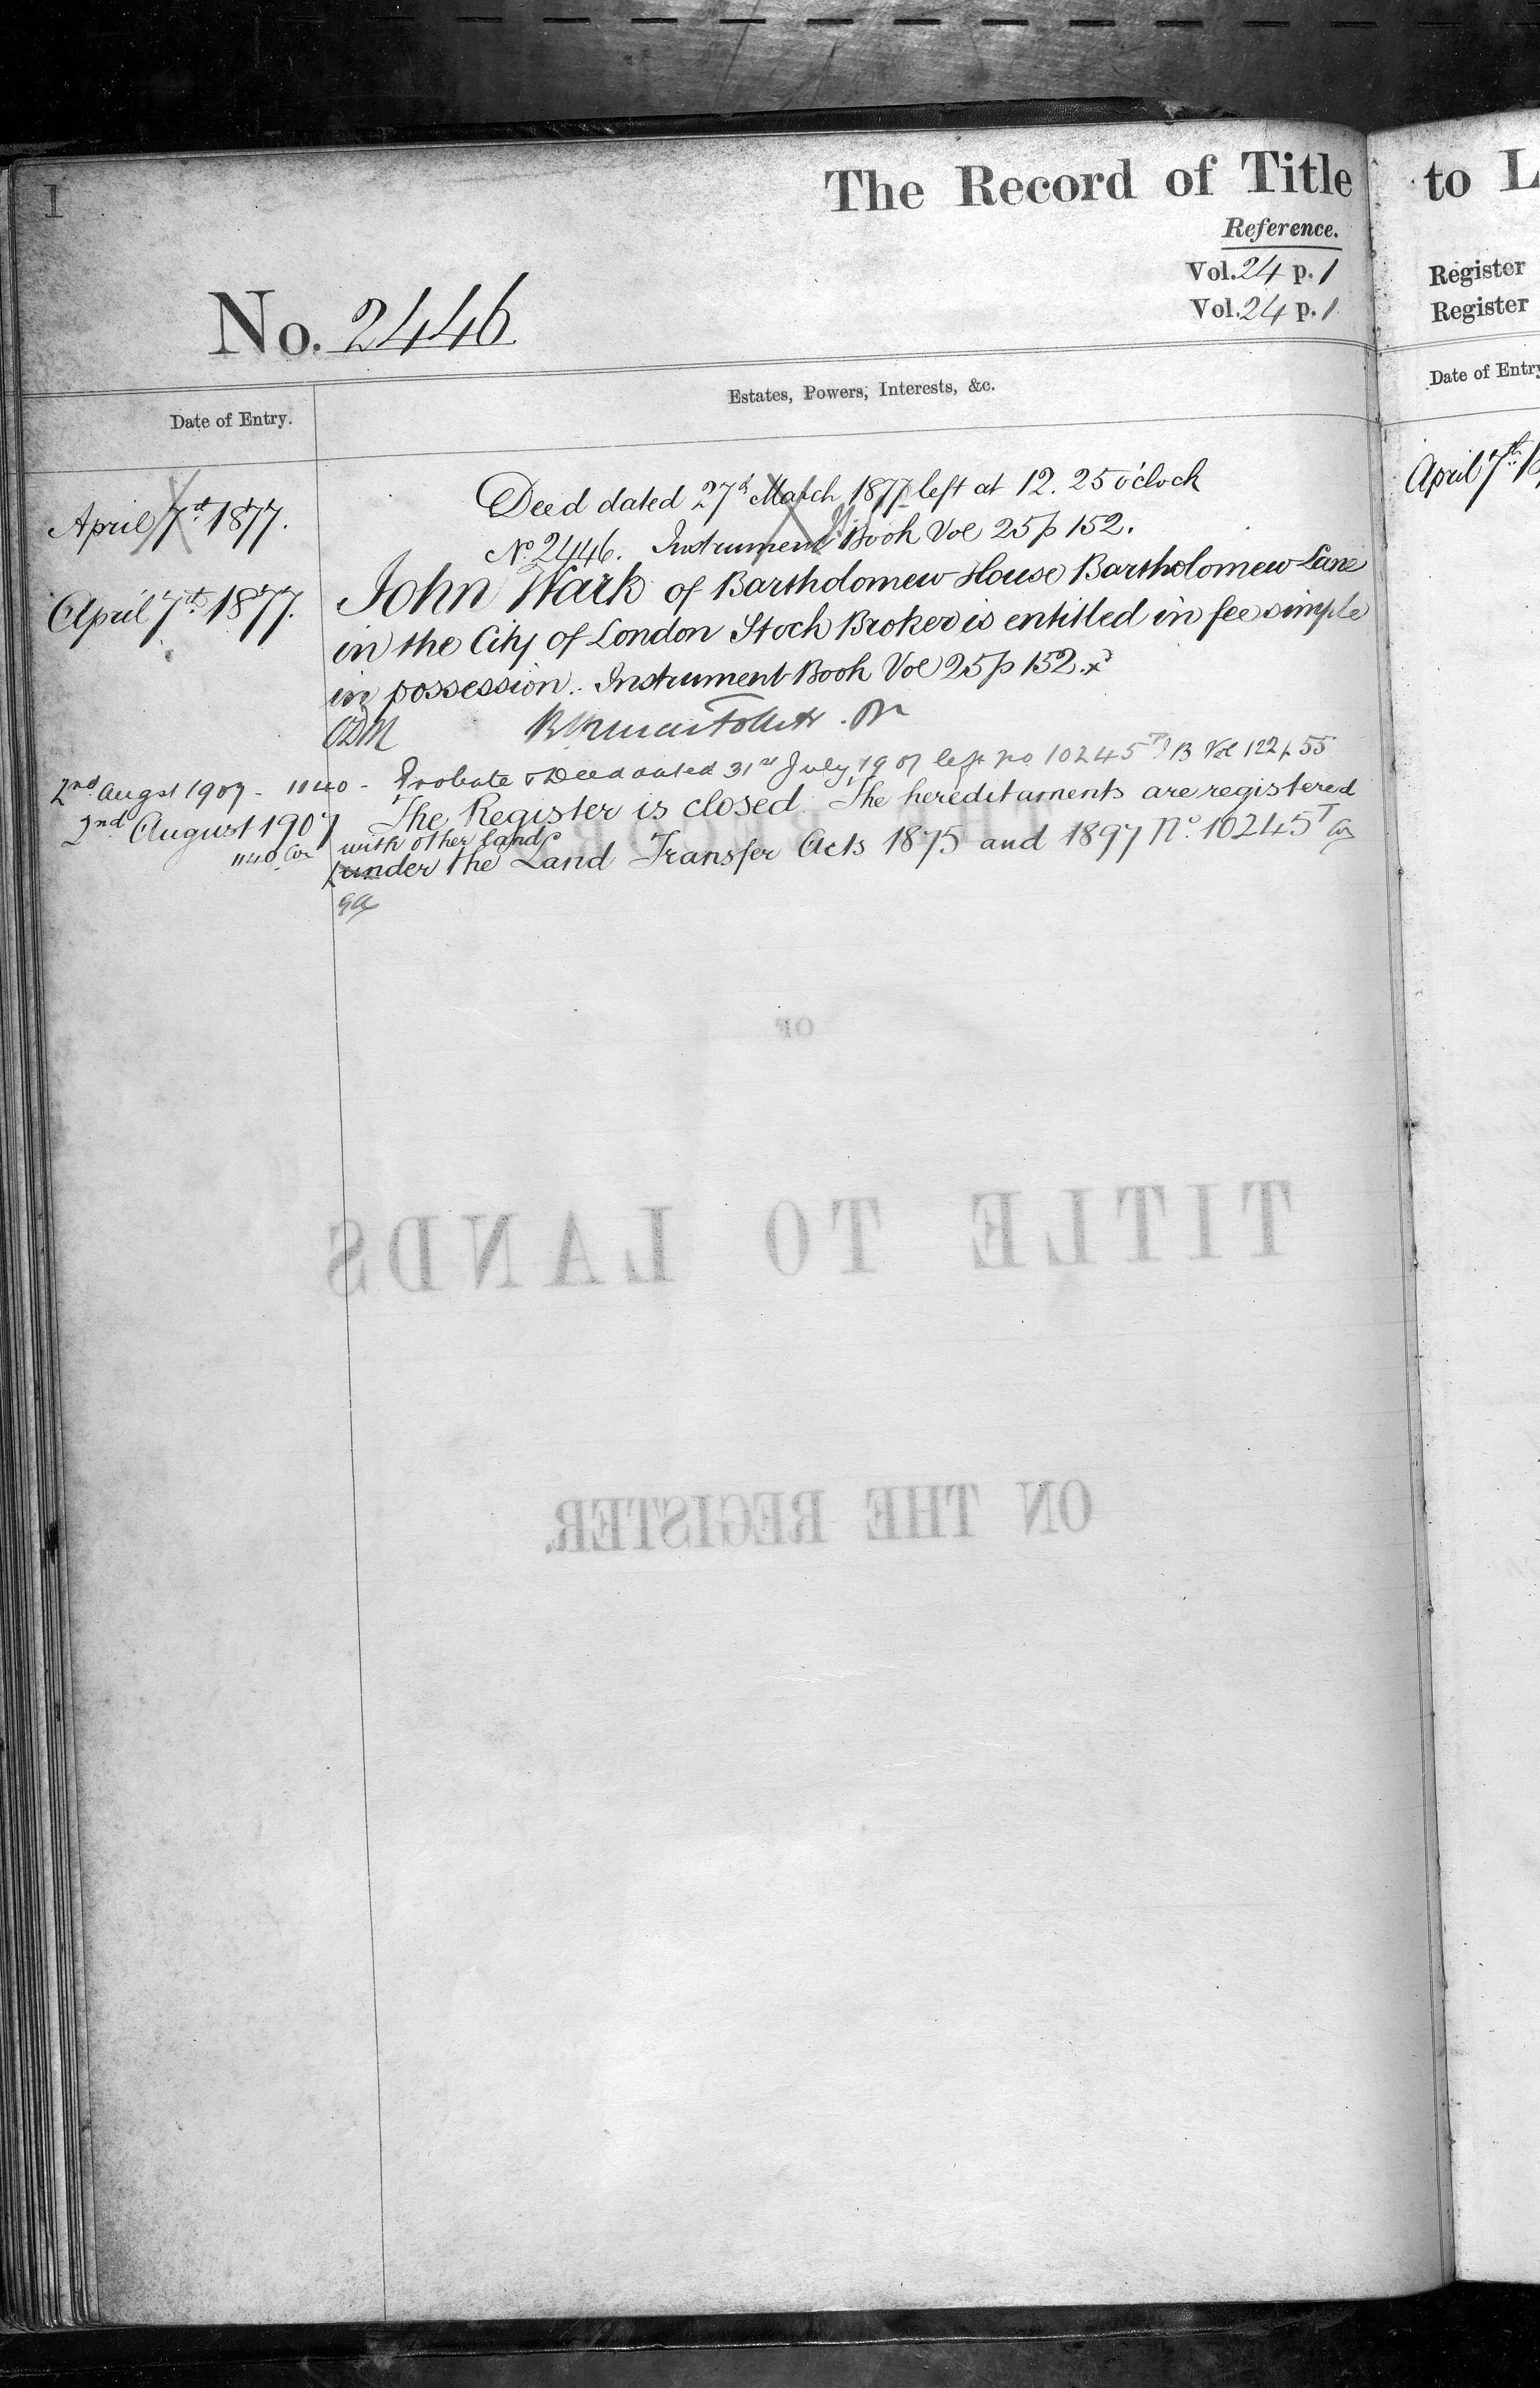 1
The Record of Title
Reference.
Vol. 24 p. 1
Vol. 24 p. 1
No. 2446
Date of Entry.
Estates, Powers, Interests, &c.
April 7th 1877.
Deed dated 27th March 1877 left at 12.25 o'clock
No. 2446. Instrument Book Vol 25 p 152.
April 7th 1877.
John Wark of Bartholomew House Bartholomew Lane
in the City of London Stock Broker is entitled in fee simple
in possession. Instrument Book Vol 25 p 152.
2nd Augst 1907 - 11 40 - Probate & Deed dated 31st July 1907 left no 10245 T B Vol 122 p 55
2nd August 1907
The Register is closed. The hereditaments are registered
11 40
with other land
under the Land Transfer Acts 1875 and 1897 No. 10245 T
OF
TITLE TO LANDS
ON THE REGISTER.
to L
Register
Register
Date of Entry
April 7th 1